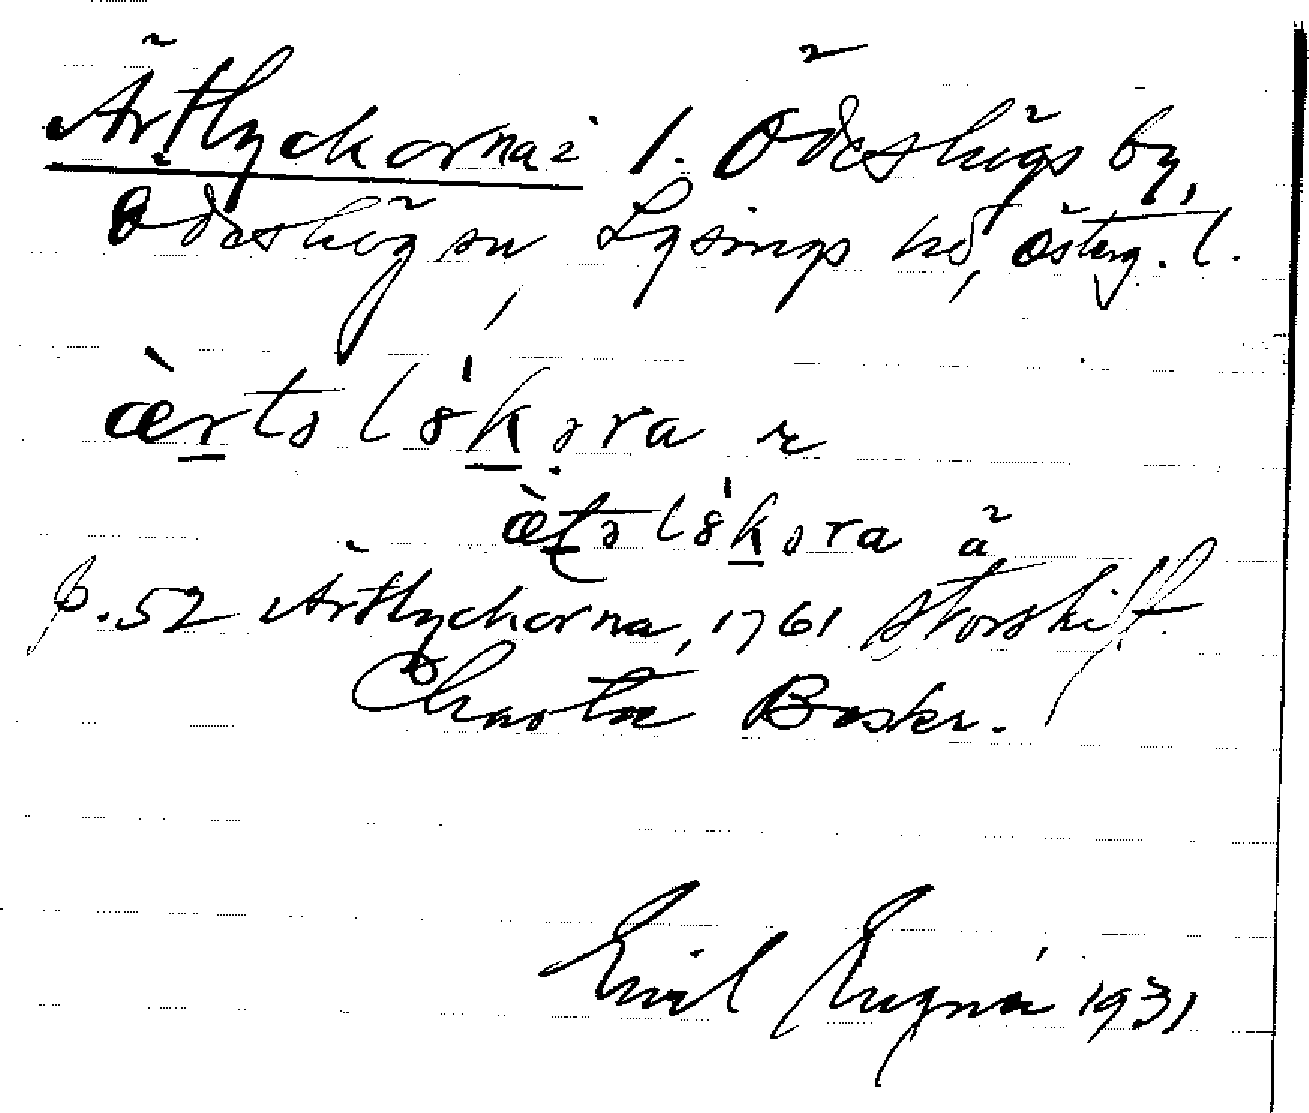 Ärtlyckorna: 1. Ödeshögs by,
Ödeshög sn, Lysings hd, Österg. l.
ærtslȣkɔra
ætslȣkɔra
p. 52 Ärtlyckorna, 1761 storskift.
Charta Beskr.
Emil 1931